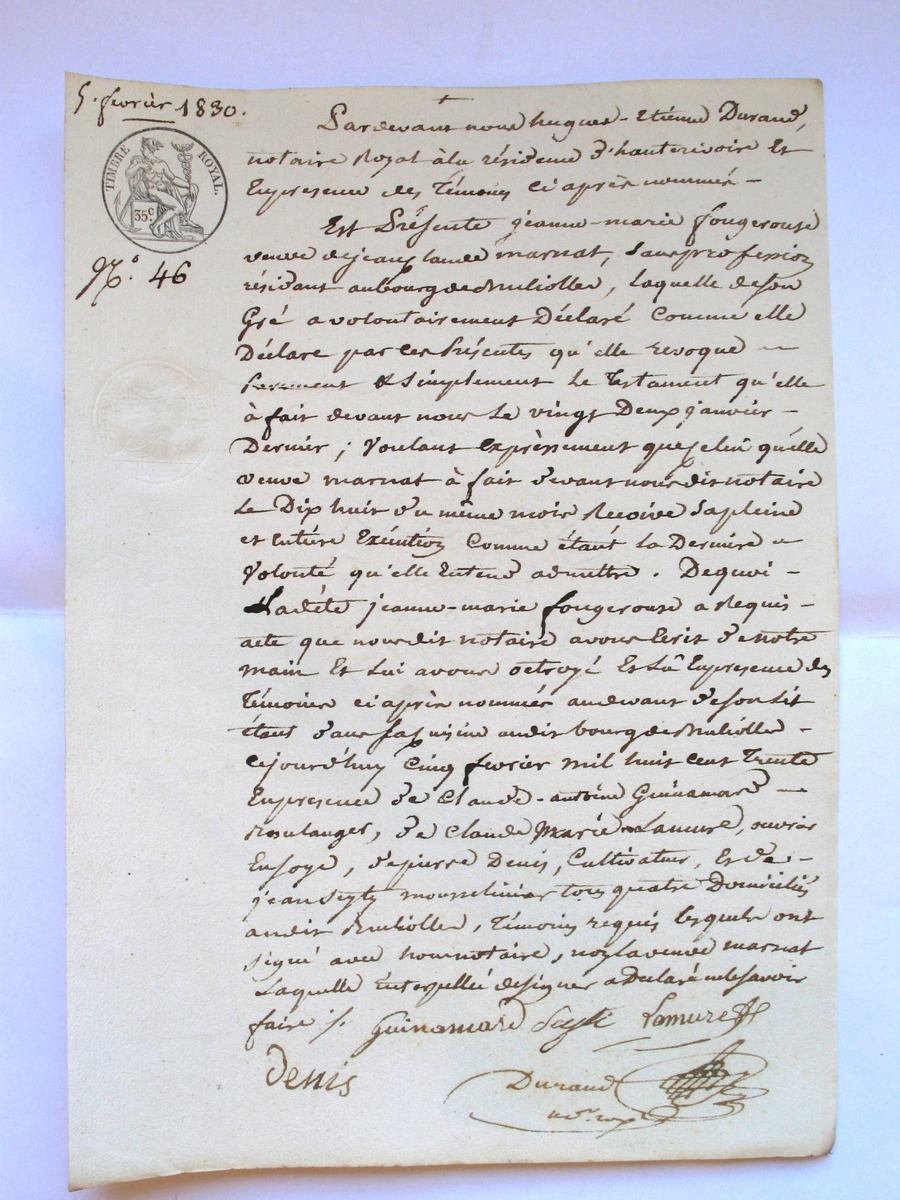 5. fevrièr 1830.
TIMBRE ROYAL.
35 c
N.° 46
Pardevant nous hugues-Etiénne Durand,
notaire Royal à la résidence d'hauterivoire Et
Enpresence des Témoins ci après nommés -
Est Présente jeanne-marie fougerouse
veuve de jean claude marnat, Sans profession
résidant au bourg de Brulliolles, laquelle de son
Gré a volontairement Déclaré Comme elle
Déclare par ces présentes qu'elle revoque -
purement & simplement Le Testament qu'elle
à fait devant nous Le vingt Deux janvièr -
Dernièr ; Voulant expréssement que celui qu'elle
veuve marnat à fait devant nous dit notaire
Le Dix huit du même mois Recoive sa pleine
et entière Exécution Comme étant La Dernière -
Volonté qu'elle Entend admettre. Dequoi -
Ladéte jeanne-marie fougerouse a Requis -
acte que nous dit notaire avons Ecrit de notre
main Et Lui avons octroyé Et Lû Enpresence des
Témoins ci après nommés audevant de son Lit
étant dans sa cuisine audit bourg de Brulliolles -
cejourd'huy Cinq fevrièr mil huit cent Trente
Enpresence de Claude-antoine Guinamard -
Boulanger, de Claude Marie Lamure, ouvrier
Ensoye, de pierre Denis, Cultivateur, Et de -
jean Seyty mousselinier tous quatre Domiciliés
audit Brulliolles, Témoins requis lesquels ont
signé avec nous notaire, non la veuve marnat
Laquelle interpellée de signer a Déclaré ne le savoir
faire ./. Guinamard Seyti Lamure
Denis
Durand
no.re royal